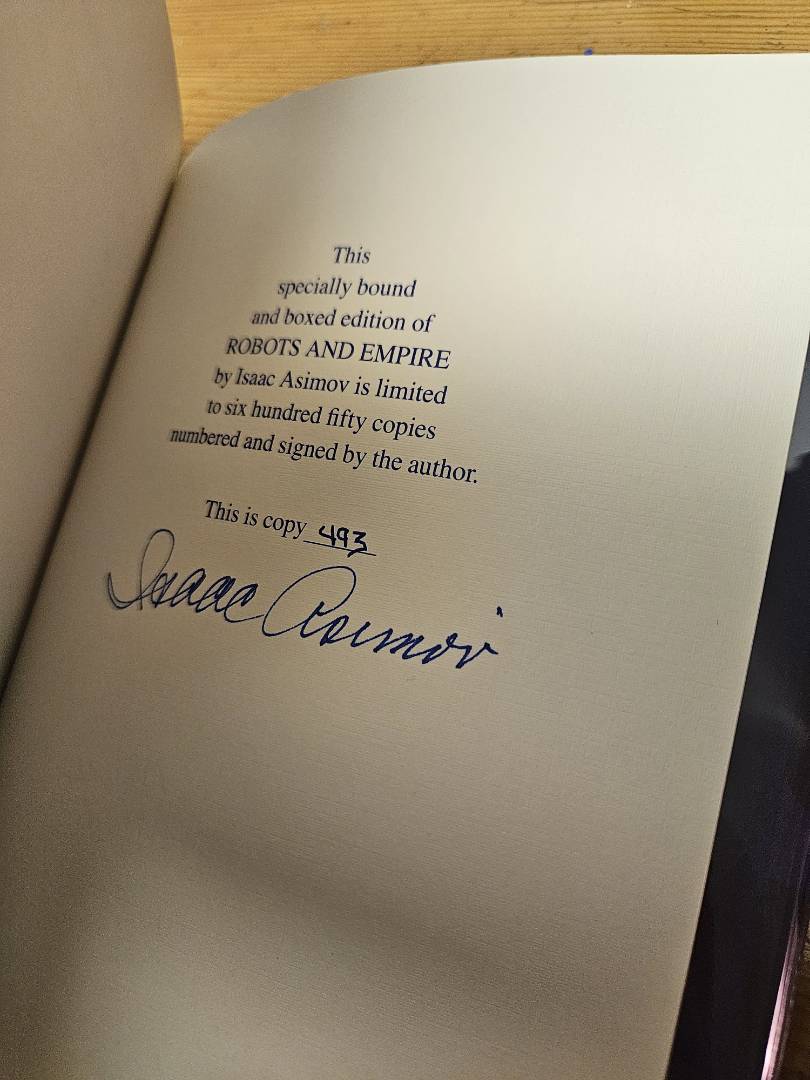 This
specially bound
and boxed edition of
ROBOTS AND EMPIRE
by Isaac Asimov is limited
to six hundred fifty copies
numbered and signed by the author.
This is copy 493
Isaac Asimov